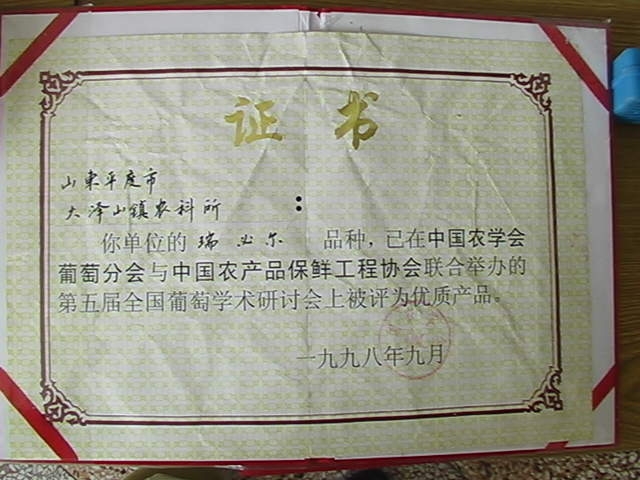 证书
山东平度市
大泽山镇农科所：
你单位的 瑞必尔 品种，已在中国农学会
葡萄分会与中国农产品保鲜工程协会联合举办的
第五届全国葡萄学术研讨会上被评为优质产品。
一九九八年九月